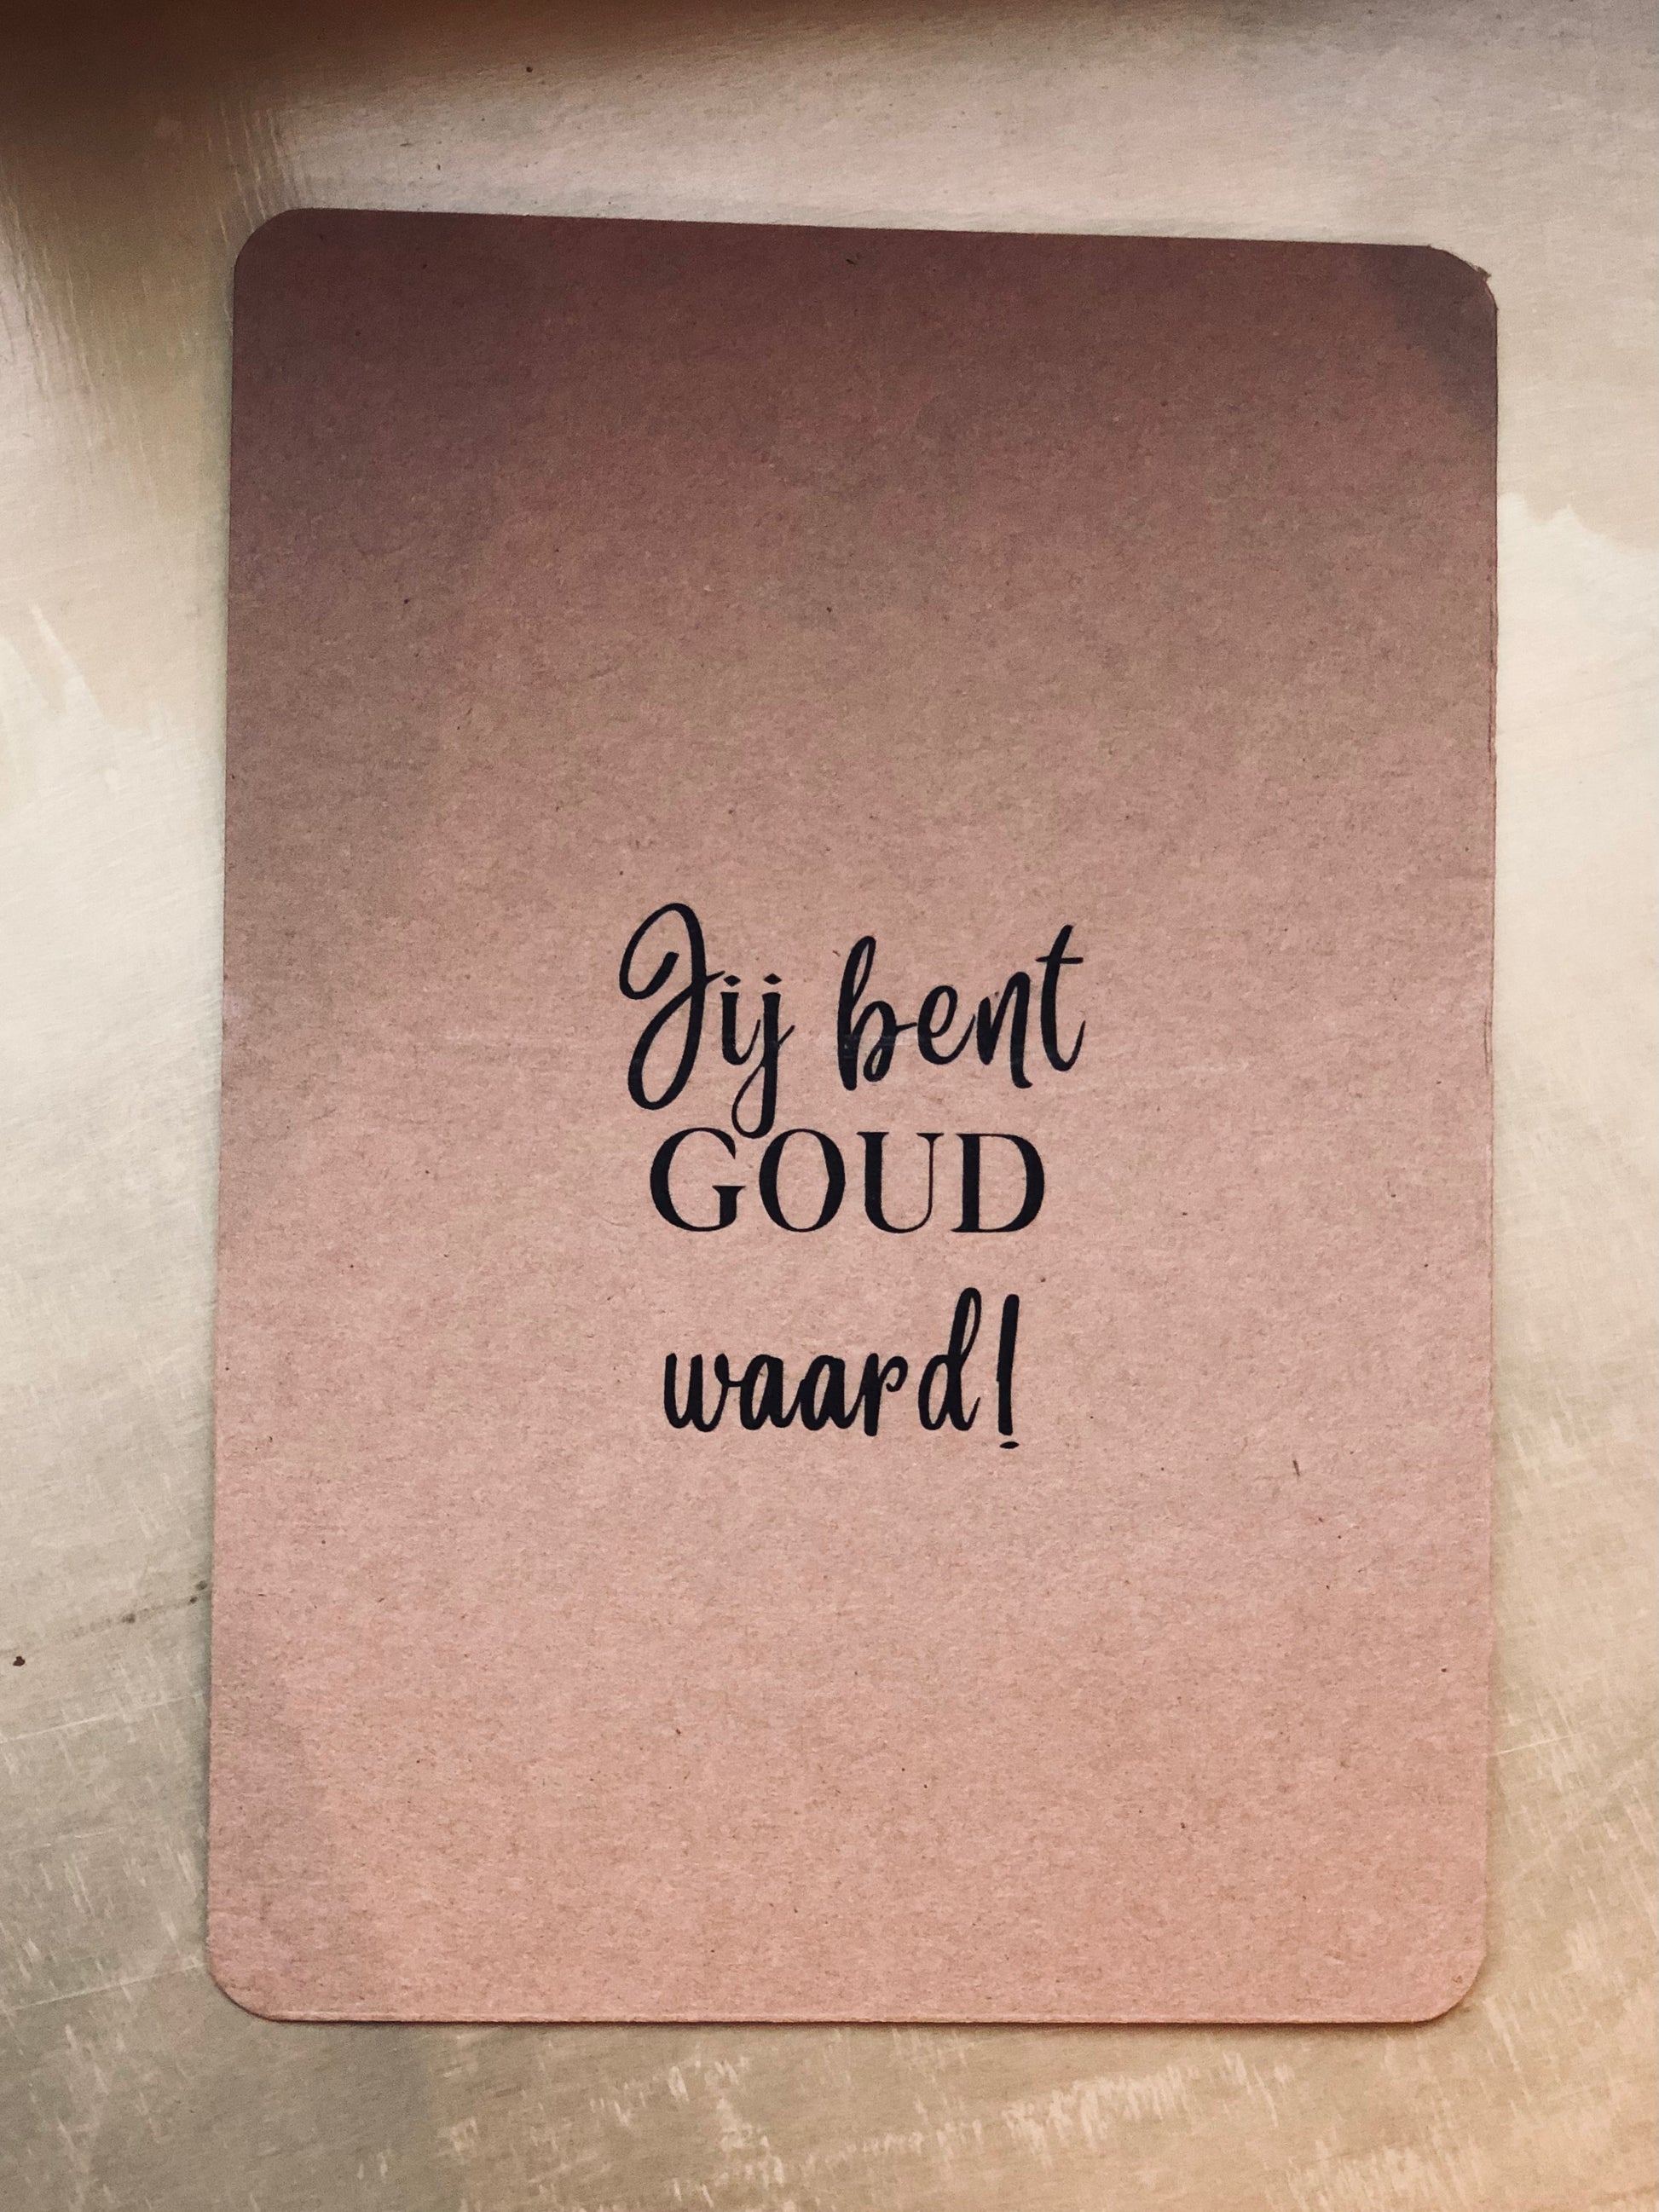 Jij bent
GOUD
waard!